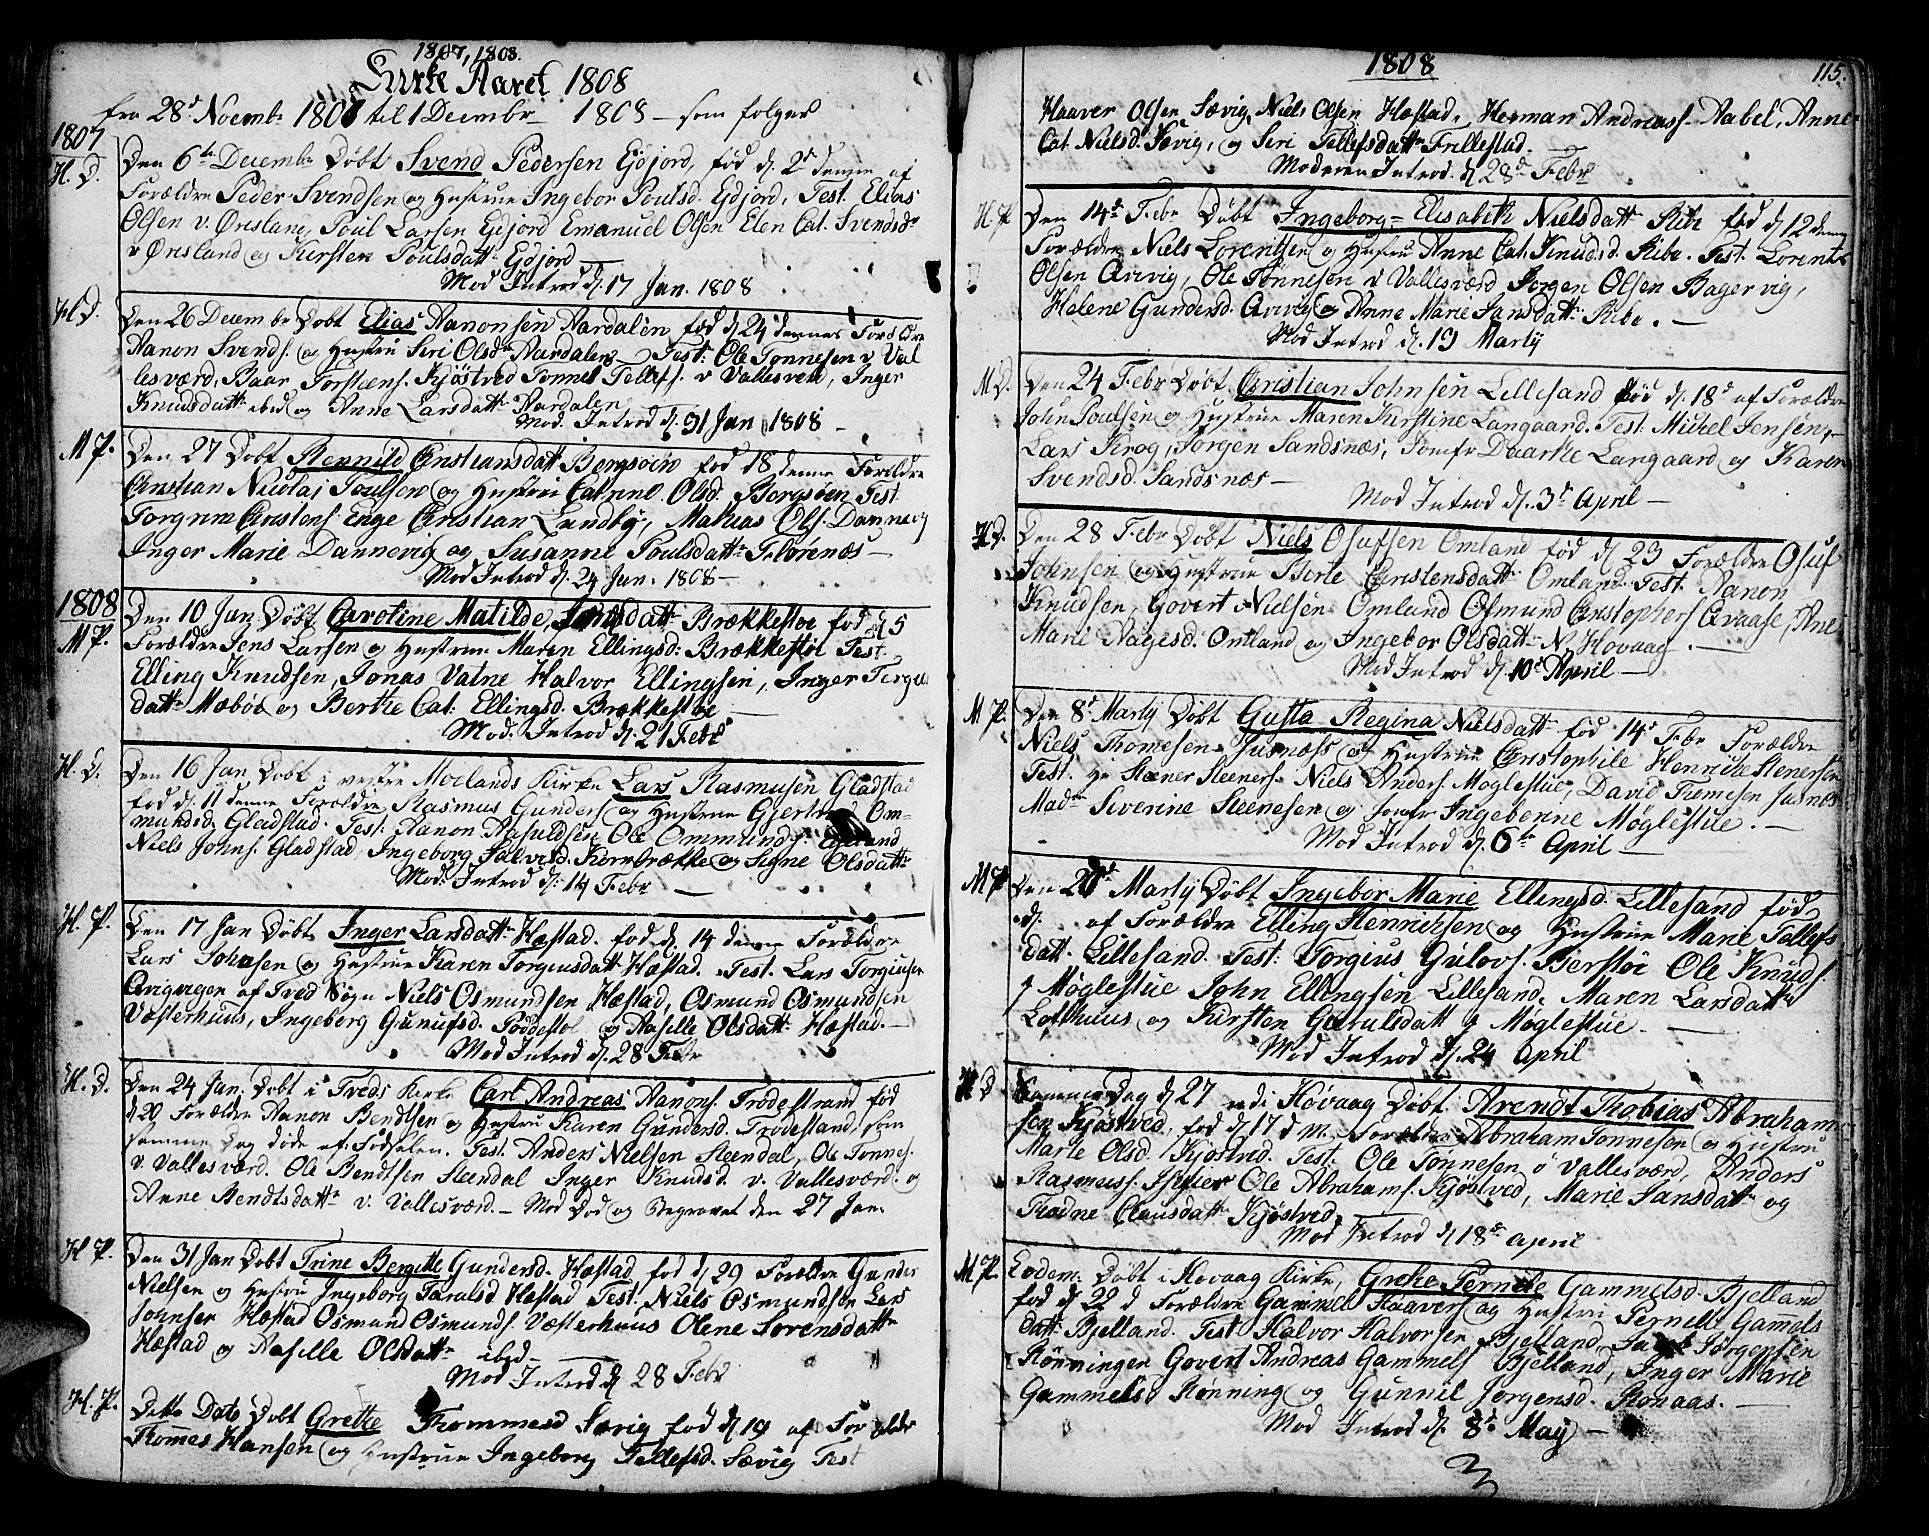 1807, 1808.
Kirke Aaret 1808
fra 28d Noembr 1807 til 1 Decembr 1808 – som følger
1807
H. D. Den 6te Decembr Døbt Svend Pedersen Ejdjord, fød d. 2d denne af
Forældre Peder Svendsen og Hustrue Ingebor Poulsd. Ejdjord, Test. Elias
Olsen v. Ørisland, Poul Larsen Ejdjord Emanuel Olsen Elen Cat. Svendsdr
v Ørisland og Kirsten Poulsdattr Ejdjord
Mod Introd d. 17 Jan. 1808
H D. Den 26 Decembr Døbt Elias Aanonsen Aardalen fød d. 24 dennes Forældre
Aanon Svends. og Hustru Siri Olsdr Aardalen – Test: Ole Tønnesen v. Val
lesværd, Baar Torstens. Kjøstved Tønnes Tellefs. v Vallesverd, Inger
Knudsdattr ibid og Anne Larsdattr Aardalen
Mod. Introd d. 31 Jan 1808 –
M P. Den 27 Døbt Rennild Christiansdatt Borgsøen fød 18 denne Forældre
Christian Nicolai Poulsen og Hustrue Catrine Olsd. Borgsøen Test
Torgrim Christens. Enge Christian Lundby, Mathias Ols. Dannevig
Inger Marie Dannevig og Susanne Poulsdattr Florenæs –
Mod Introd d. 24 Jan. 1808 –
1808
M P. Den 10 Jan Døbt Caroline Matilde, Jensdatt Brækkestøe fød d. 5
Forældre Jens Larsen og Hustrue Maren Ellingsd: Brækkestøe Test
Elling Knudsen, Jonas Vatne Halvor Ellingsen, Inger Tergus
dattr Mæbøe og Berthe Cat: Ellingsd. Brækkestøe
Mod. Introd d. 21 Febr
H. D. Den 16 Jan Døbt i vestre Molands Kirke Lars Rasmusen Gladstad
fød d. 11 denne Forældre Rasmus Gunders. og Hustrue Gjertrud Om-
mundsd. Gladstad. Test. Aanon Aasuldsen Ole Ommunds.
Niels Johns. Gladstad, Ingeborg Salvesd. Kornbrække og Signe Olsdattr
Mod: Introd d: 14 Febr –
H. P. Den 17 Jan Døbt Inger Larsdattr Hæstad. fød d. 14 denne Forældre
Lars Johnsen og Hustrue Karen Torgiusdatt Hæstad. Test. Lars Torgiusen
af Tved Sogn Niels Osmundsen Hæstad, Osmund Osmundsen
Væsterhuus, Ingeborg Gunufsd. Poddestøl og Aasille Olsdattr Hæstad. –
Mod Introd d. 28 Febr
H. D. Den 24 Jan. Døbt i Tveds Kirke Carl Andreas Aanons. Trødestrand fød
d 20 Forældre Aanon Bendtsen og Hustru Karen Gundersd. Trødestrand, som
samme Dag døde af Fødselen. Test. Anders Nielsen Steendal, Ole Tønnes.
v. Vallesværd. Ole Bendtsen Steendal Inger Knudsd. v. Vallesværd. og
Anne Bendtsdattr v. Vallesværd. – Mod Død og Begravet den 27 Jan.
H. P. Den 31 Jan Døbt Trine Bergitte Gundersd. Hæstad fød d 29 Forældre Gunder
Nielsen og Hustru Ingeborg Taralsd Hæstad Test. Niels Osmundsøn Lars
Johnsen Hæstad Osmund Osmunds. Væsterhuus Olene Sørensdattr
Hæstad og Aasille Olsdattr ibid –
Mod Introd d. 28 Febr
H. P. Dette Dato Døbt Grethe Thommesd Sævig fød d 19 af Forældre
Thomes Hansen og Hustrue Ingeborg Tellefsd. Sævig Test
1808
115.
Haaver Olsen Sævig, Niels Olsen Hæstad, Herman Andreass. Aabel, Anne
Cat. Nielsd. Sævig, og Siri Tellefsdattr Frillestad.
Moderen Introd. d. 28d Febr
H. P. Den 14d Febr Døbt Ingeborg=Elisabeth Nielsdattr Ribe fød d 12 denne
Forældre Niels Lorentsen og Hustru Anne Cat. Knudsd. Ribe. Test. Lorents
Olsen Qvivig, Ole Tønnesen v Vallesværd Jørgen Olsen Bagervig,
Helene Gundersd. Qvivig og Anne Marie Jansdattr Ribe. –
Mod Introd d. 13 Martij
M D. Den 24 Febr Døbt Christian Johnsen Lillesand fød d. 18d af Forældre
John Poulsen og Hustrue Maren Kirstine Langaard. Test. Michel Jensen,
Lars Krog, Jørgen Sandsnæs, Jomfr Daarthe Langaard og Karen
Svendsd. Sandsnæs –
Mod Introd d. 3d April –
H D. Den 28 Febr Døbt Niels Osufsen Omland fød d. 23 Forældre Osuf
Johnsen og Hustrue Berte Christensdattr Omland. Test. Aanon
Knudsen, Govert Nielsen Omland Osmund Christophers Qvaase, Ane
Marie Aagesd. Omland og Ingebor Olsdattr N. Hovaag. –
Mod Introd d. 10d April –
M. P. Den 8d Martij Døbt Gusta Regina Nielsdattr fød 14d Febr Forældre
Niels Thomesen Justnæss og Hustrue Christophile Henriche Stenersen
Test. Hr Steener Steeners. Niels Anders. Møglestue, David Thomesen Justnæs
Madm Severine Steenesen og Jomfr Ingeborine Møglestue. –
Mod Introd d. 6te April –
M P Den 20d Martij Døbt Ingebor Marie Ellingsd. Lillesand fød
d. af Forældre Elling Henrichsen og Hustrue Marie Tellefs
datt. Lillesand. Test: Torgius Gulovs. Berstøe Ole Knuds.
Møglestue John Ellingsen Lillesand. Maren Larsdattr
Lofthuus og Kirsten Gaurulsdatt Møglestue. –
Mod Introd d. 24 April
H D Samme Dag d 27 udi Høvaag Døbt Arendt Tobias Abraham-
sen Kjøstved, fød d. 17 d M. Forældre Abraham Tønnesen og Hustru
Marte Olsd. Kjøstved. Test. Ole Tønnesen Ø Vallesværd, Anders
Rasmuss. Ole Abrahams. Kjøstved, Marie Jansdattr og
Thodne Clausdattr Kjøstved
Mod Introd d 18de April
M P. Eodem Døbt i Høvaag Kirke, Grethe Pernille Gammelsd. Bjelland
fød d 22 d Forældre Gammel Haavers. og Hustru Pernille Gamels
datt. Bjelland. Test Halvor Halvorsen Bjelland, Jacob Jørgensen
Rønningen Govert Andreas Gammels Bjelland, Inger Marie
Gammelsd Rønning og Gunnil Jørgensd. Ronaas. –
Mod Introd d. 8d May –